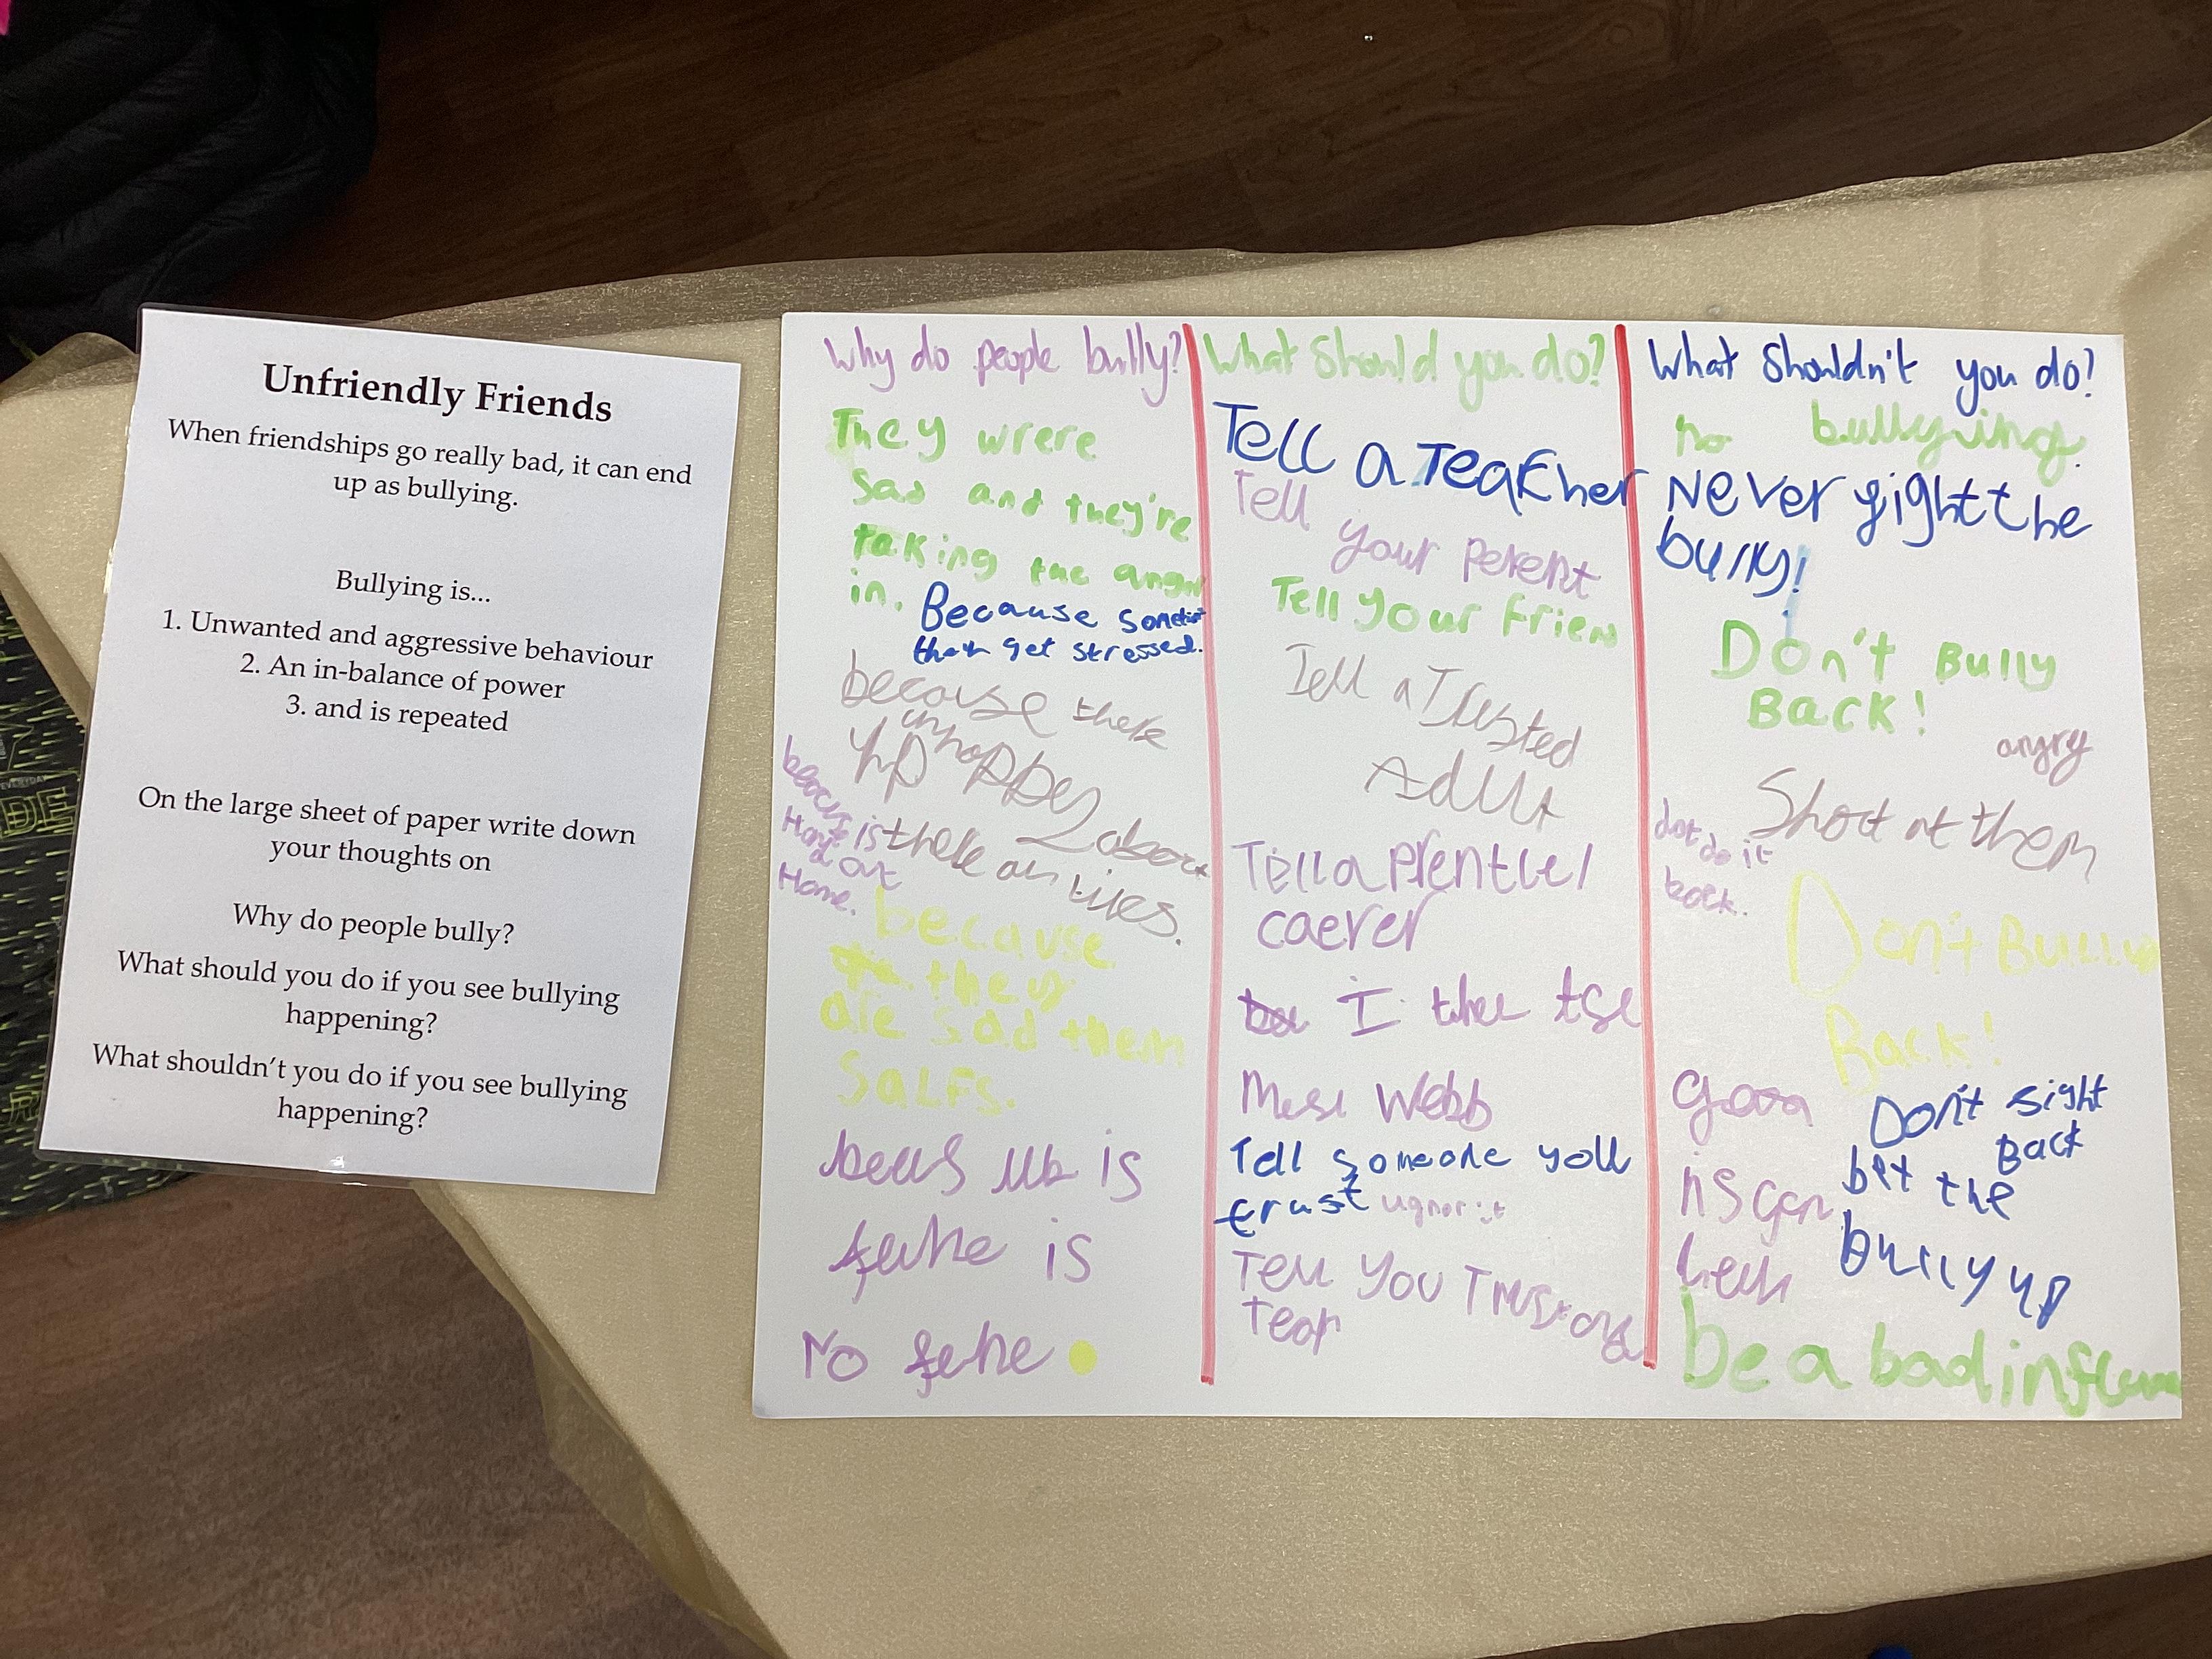 Unfriendly Friends
When friendships go really bad, it can end
up as bullying.
Bullying is...
1. Unwanted and aggressive behaviour
2. An in-balance of power
3. and is repeated
On the large sheet of paper write down
your thoughts on
Why do people bully?
What should you do if you see bullying
happening?
What shouldn't you do if you see bullying
happening?
Why do people bully?
They wrere
sad and they're
taking the
in.
Because
get stressed.
because there
unhappey about
there own lives.
because
Hard at
Home.
because
they
are sad them
salfs.
is
is
no
What should you do?
Tell a Teacher
Tell
your perent
Tell your frien
Tell a Trusted
Adult
Tell a
caerer
I
Webb
Tell someone you
trust ugnor it
Tell you Trust
What shouldn't you do?
no bullying.
Never fight the
bully!
Don't Bully
Back!
angry
Shout at them
do it
back.
Don't Bully
Back!
Don't fight
Back
the
bully up
be a bad